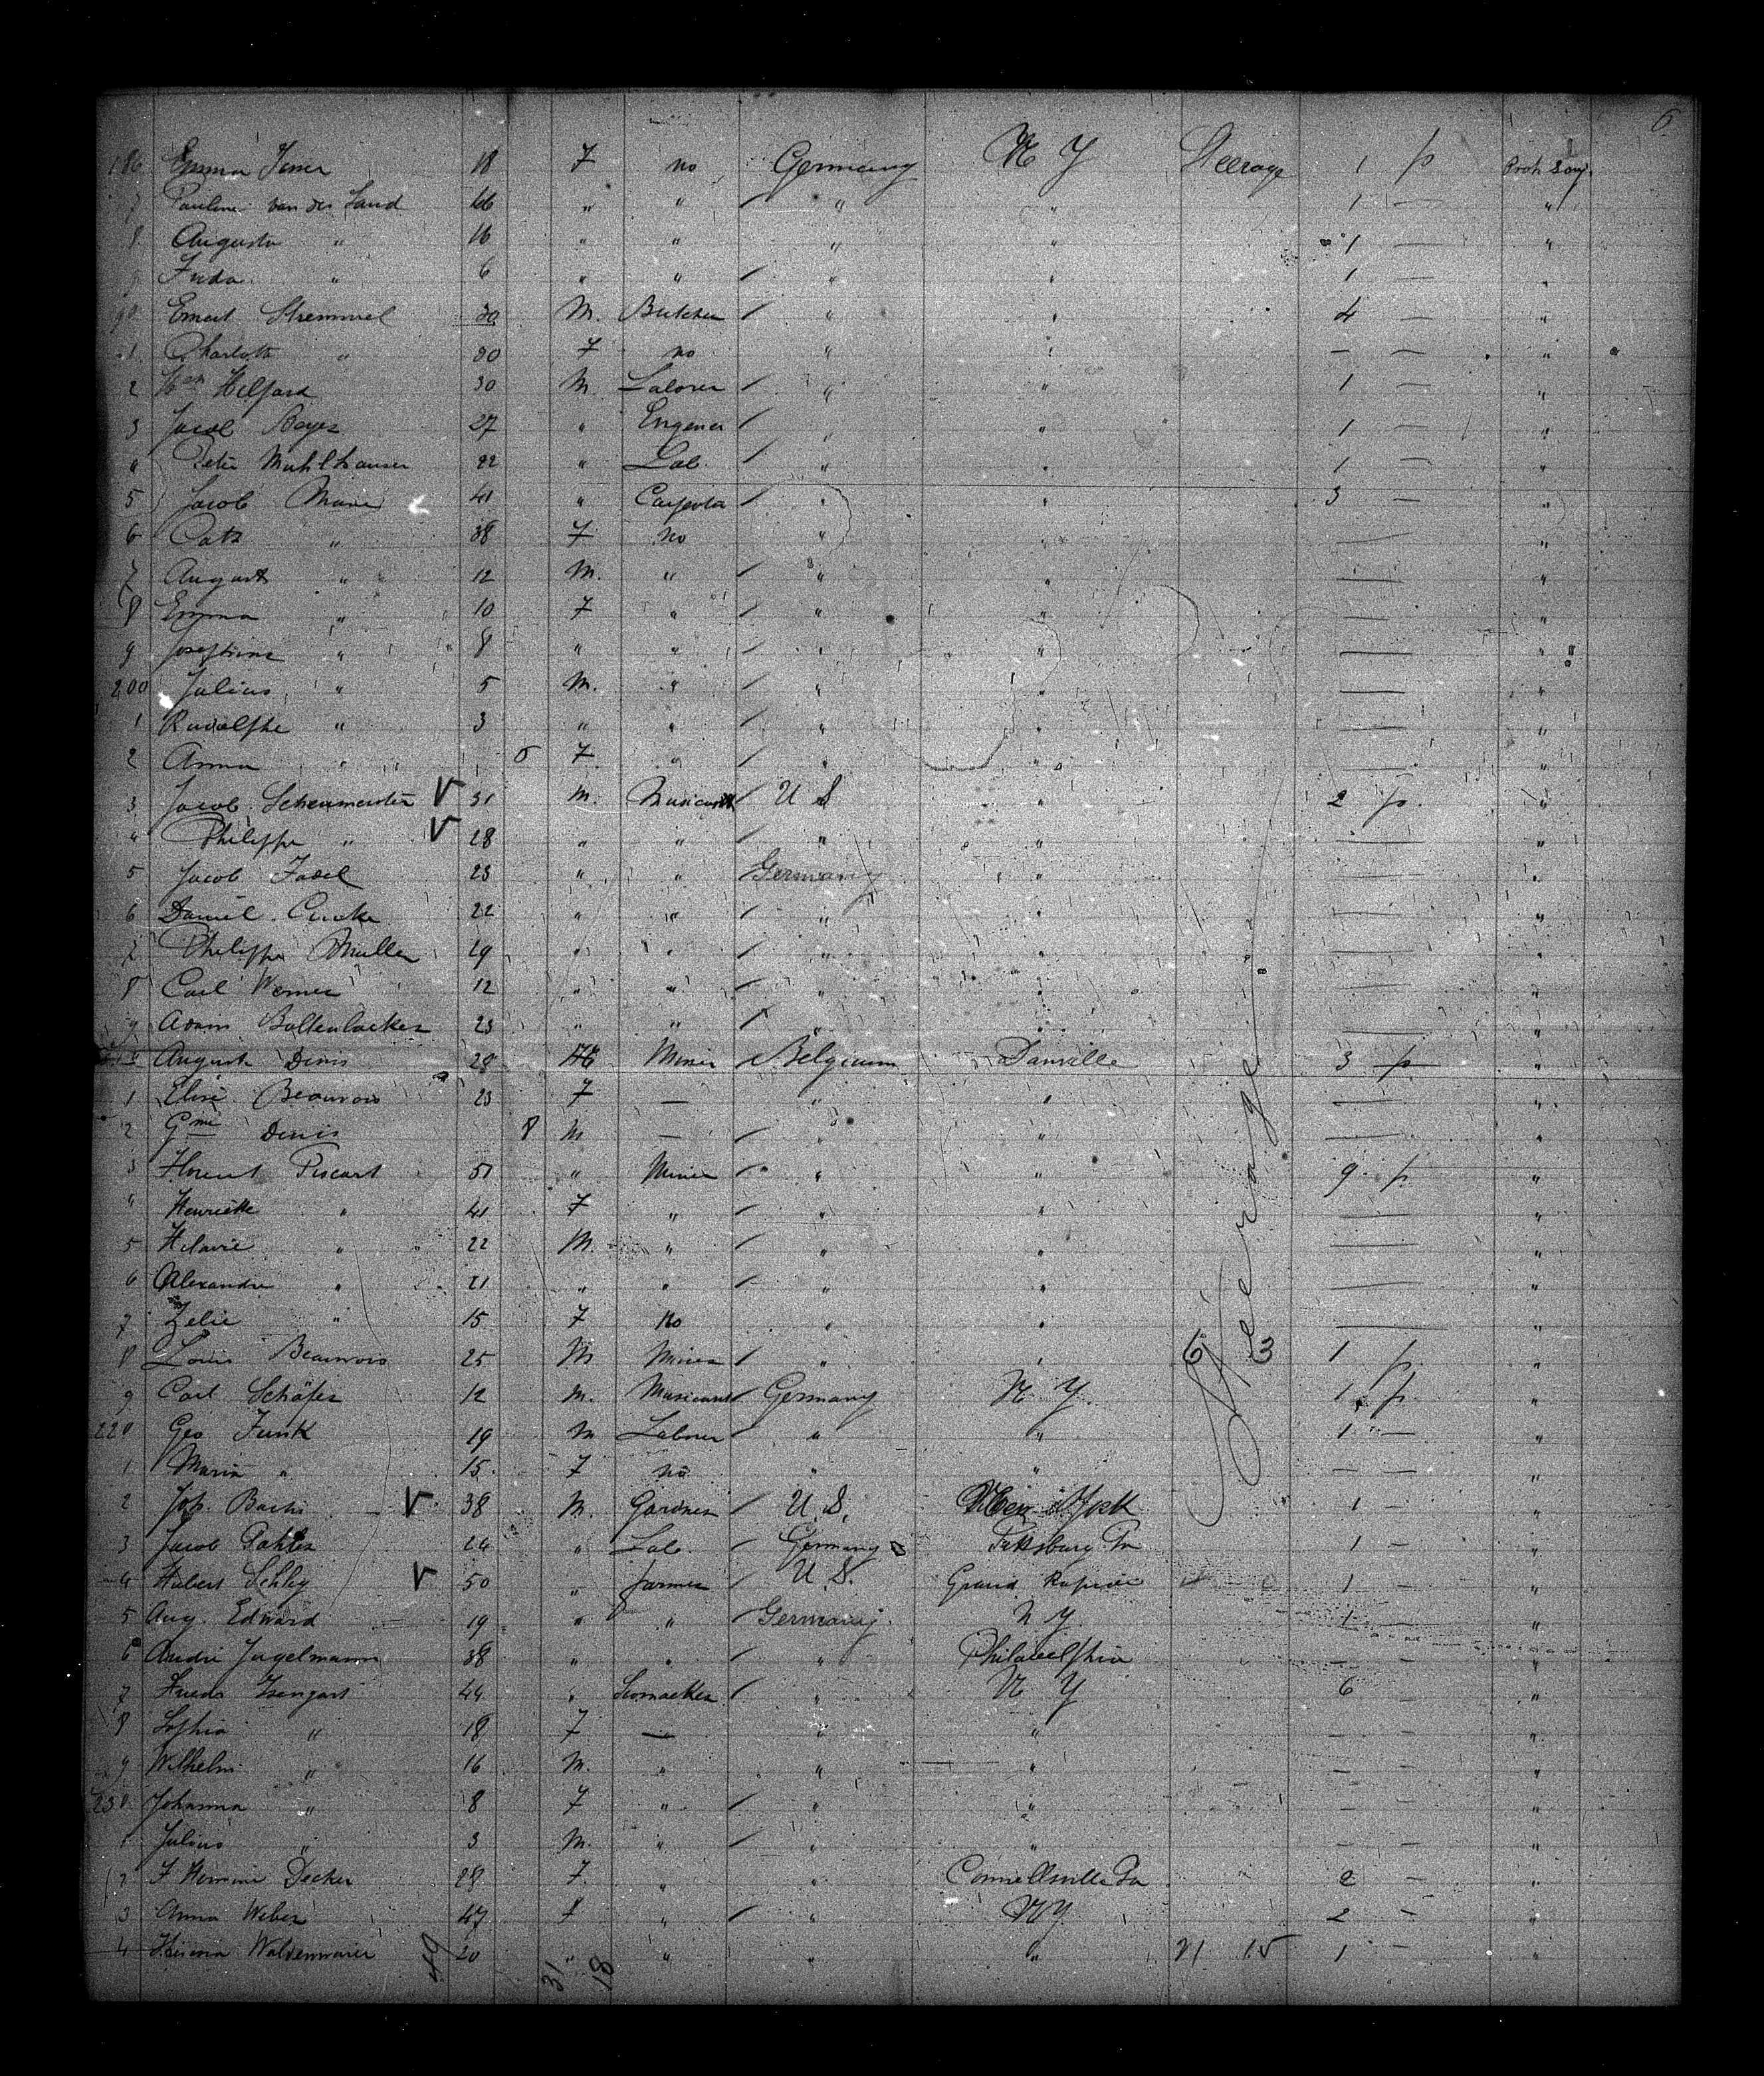 6
186 Emma 18 F no Germany N Y Steerage 1 p Prot Souj
7 Pauline van der Sand 46 " " " " 1 — "
8 Augusta " 16 " " " " 1 — "
9 Frida " 6 " " " " 1 — "
90 Ernest Stremmel 30 M. Butcher " " 4 — "
1 Charlotte " 30 F no " " — — "
2 Wm Helfard 30 M. Laborer " " 1 — "
3 Jacob Bayer 27 " Engener " " 1 — "
" Peter Muhlhauser 22 " Lab. " " 1 — "
5 Jacob 41 " Carpenter " " 3 — "
6 Cath " 38 F no " " — "
7 August " 12 M. " " " — "
8 Emma " 10 F " " " — "
9 Josephine " 8 " " " " — "
200 Julius " 5 M. " " " — "
1 Rudolphe " 3 " " " " — "
2 Anna " 6 F " " " — "
3 Jacob Scheuermeister V 31 M. Musicant U S " 2 p. "
" Philippe " V 28 " " " " — "
5 Jacob 23 " " Germany " — "
6 Daniel 22 " " " " — "
7 Philippe Muller 19 " " " " — "
8 Carl Werner 12 " " " " — "
9 Adam Bollenbacker 23 " " " " — "
August Denis 28 M Miner Belgium Danville 3 p "
1 Elise Beauvois 23 F — " " — "
2 Gme Denis 8 M — " " — "
3 Florent Piscart 51 " Miner " " 9 p "
" Henriette " 41 F " " " — "
5 Hilaire " 22 M. " " " — "
6 Alexandre " 21 " " " " — "
7 Zelie " 15 F no " " — "
8 Louis Beauvois 25 M Miner " " 6 3 1 p. "
9 Carl Schäfer 12 M. Musicant Germany N Y. 1 p. "
220 Geo Funk 19 M Laborer " " 1 — "
1 Maria " 15 F no " " — — "
2 Jos. V 38 M. Gardner U. S. New York 1 — "
3 Jacob 24 " Lab. Germany Pittsburg Pa 1 — "
4 Hubert Schley V 50 " farmer U. S. Grand Rapids 1 — "
5 Aug. Edward 19 " " Germany N Y 1 — "
6 André 38 " " " Philadelphia — — "
7 44 " " N Y 6 — "
8 Sophia " 18 F — " " — — "
9 Wilhelm " 16 M. " " " — — "
230 Johanna " 8 F " " " — — "
1 Julius " 3 M. " " " — — "
2 Decker 28 F. " " Connellsville Pa 2 — "
3 Anna Weber 47 F " " N Y 2 — "
4 20 " " " " 21 15 1 — "
Steerage
49
31 18